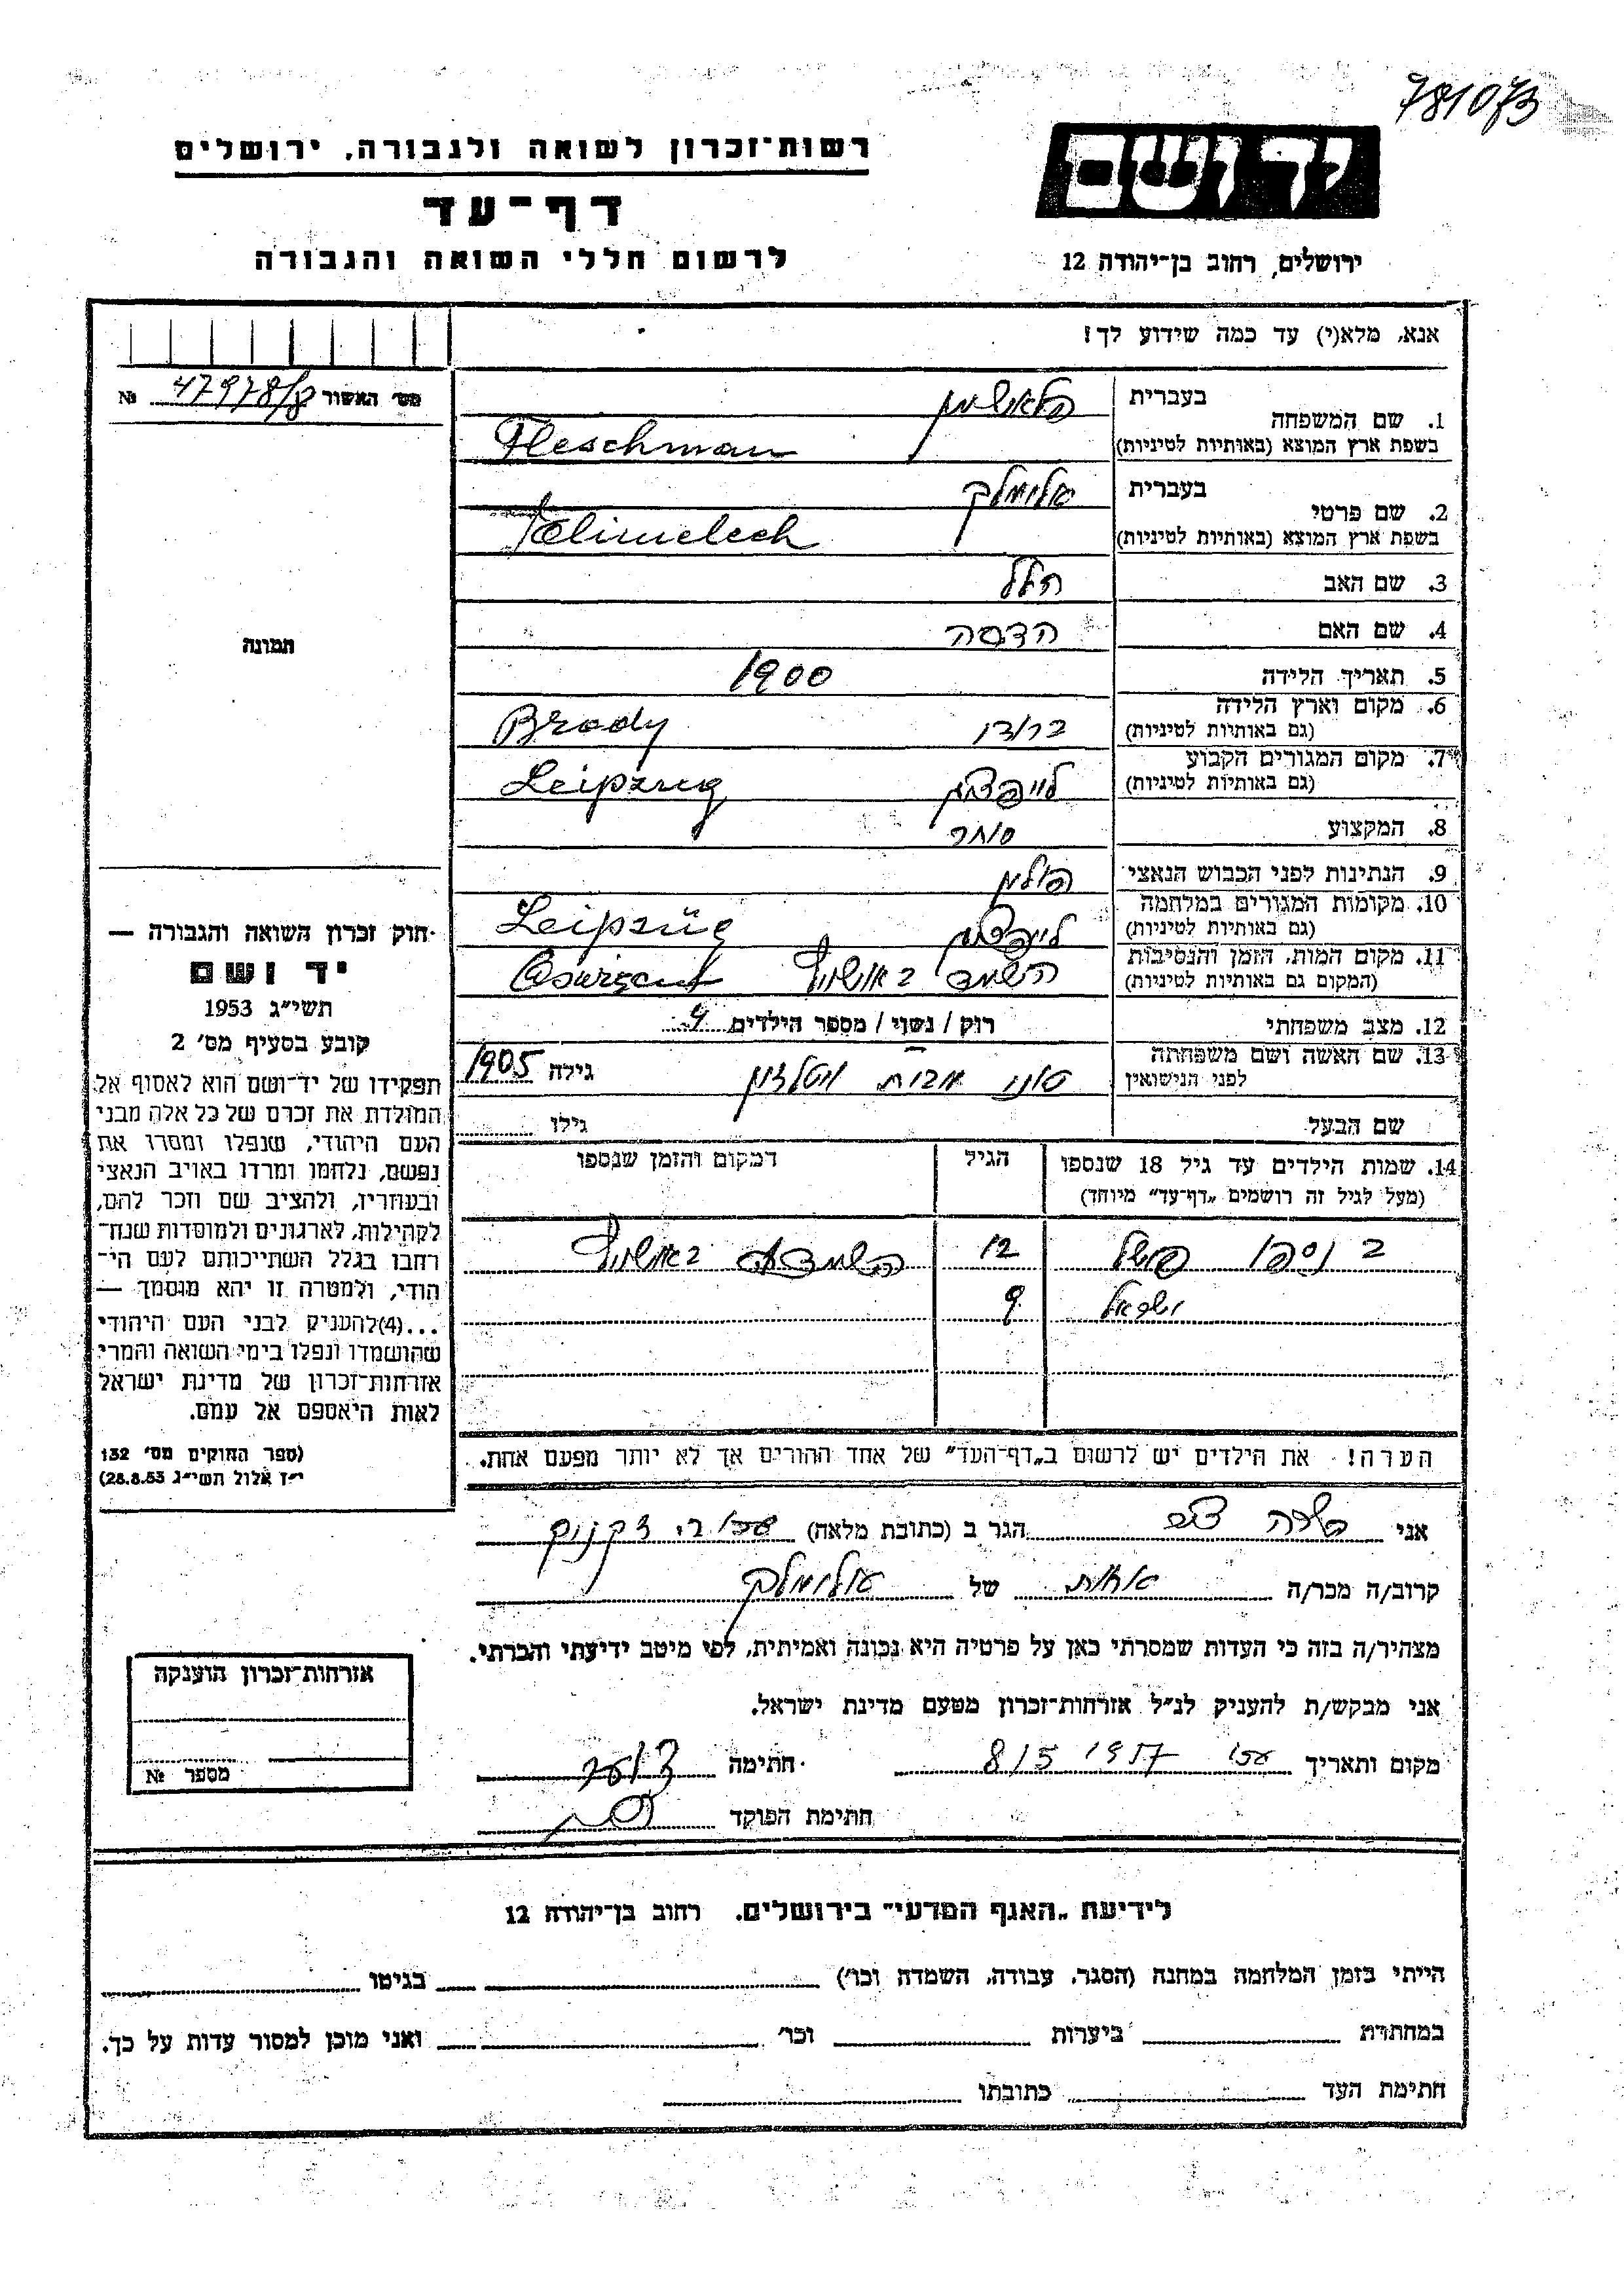 781073
יד ושם
ירושלים, רחוב בן־יהודה 12
רשות־זכרון לשואה ולגבורה, ירושלים
דף־עד
לרשום חללי השואה והגבורה
אנא, מלא(י) עד כמה שידוע לך!
מס׳ האשור 47978/8 №
תמונה
1. שם המשפחה
בעברית פלאשמן
בשפת ארץ המוצא (באותיות לטיניות) Fleschman
2. שם פרטי
בעברית אלימלך
בשפת ארץ המוצא (באותיות לטיניות) Elimelech
3. שם האב הלל
4. שם האם הדסה
5. תאריך הלידה 1900
6. מקום וארץ הלידה
(גם באותיות לטיניות) ברודי Brody
7. מקום המגורים הקבוע
(גם באותיות לטיניות) לייפציג Leipzug
8. המקצוע סוחר
9. הנתינות לפני הכבוש הנאצי פולין
10. מקומות המגורים במלחמה
(גם באותיות לטיניות) לייפציג Leipzüg
11. מקום המות, הזמן והנסיבות
(המקום גם באותיות לטיניות) הושמד באושויץ
12. מצב משפחתי רוק / נשוי / מספר הילדים
13. שם האשה ושם משפחתה
לפני הנישואין מבית גילה 1905
שם הבעל גילו
14. שמות הילדים עד גיל 18 שנספו
(מעל לגיל זה רושמים „דף־עד״ מיוחד)
הגיל
המקום והזמן שנספו
12 באושויץ
9
הערה! את הילדים יש לרשום ב„דף־העד״ של אחד ההורים אך לא יותר מפעם אחת.
חוק זכרון השואה והגבורה —
יד ושם
תשי״ג 1953
קובע בסעיף מס׳ 2
תפקידו של יד־ושם הוא לאסוף אל
המולדת את זכרם של כל אלה מבני
העם היהודי, שנפלו ומסרו את
נפשם, נלחמו ומרדו באויב הנאצי
ובעוזריו, ולהציב שם וזכר להם,
לקהילות, לארגונים ולמוסדות שנח־
רבו בגלל השתייכותם לעם הי־
הודי, ולמטרה זו יהא מוסמך —
...(4)להעניק לבני העם היהודי
שהושמדו ונפלו בימי השואה והמרי
אזרחות־זכרון של מדינת ישראל
לאות היאספם אל עמם.
(ספר החוקים מס׳ 132
י״ז אלול תשי״ג 28.8.53)
אני הגר ב (כתובת מלאה)
קרוב/ה מכר/ה אחות של אלימלך
מצהיר/ה בזה כי העדות שמסרתי כאן על פרטיה היא נכונה ואמיתית, לפי מיטב ידיעתי והכרתי.
אני מבקש/ת להעניק לנ״ל אזרחות־זכרון מטעם מדינת ישראל.
מקום ותאריך 8/5 1957 חתימה
חתימת הפוקד
אזרחות־זכרון הוענקה
מספר №
לידיעת „האגף המדעי״ בירושלים, רחוב בן־יהודה 12
הייתי בזמן המלחמה במחנה (הסגר, עבודה, השמדה וכו׳) בגיטו
במחתרת ביערות וכו׳ ואני מוכן למסור עדות על כך.
חתימת העד כתובתו